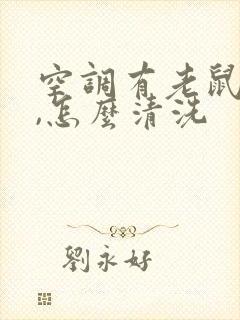 空調有老鼠
,怎麼清洗
劉永好